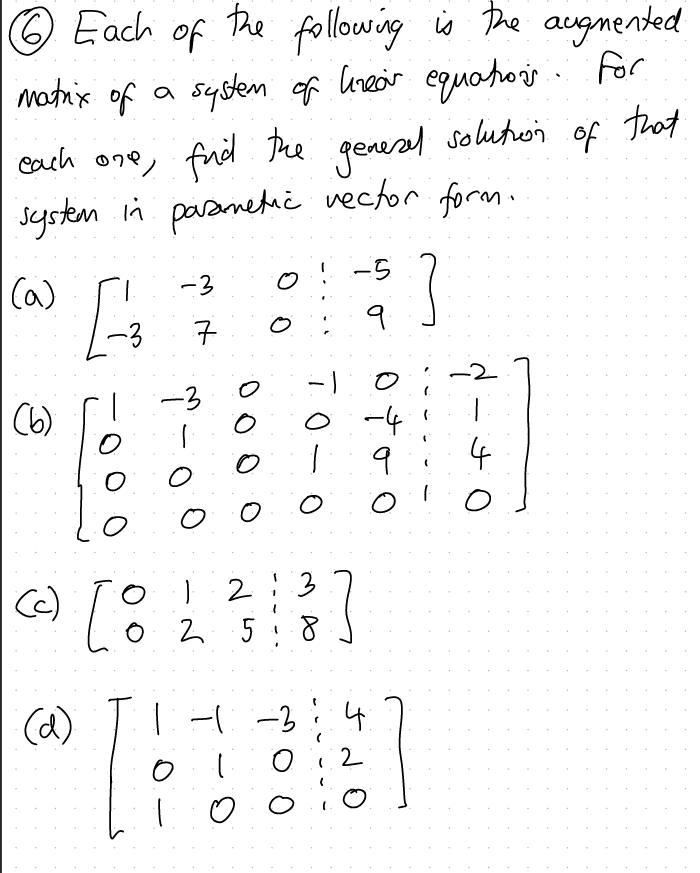 ⑥ Each of the following is the augmented
matrix of a system of linear equations. For
each one, find the general solution of that
system in parametric vector form.
(a) [ 1 -3 0 ⋮ -5 ]
[ -3 7 0 ⋮ 9 ]
(b) [ 1 -3 0 -1 0 ⋮ -2 ]
[ 0 1 0 0 -4 ⋮ 1 ]
[ 0 0 0 1 9 ⋮ 4 ]
[ 0 0 0 0 0 ⋮ 0 ]
(c) [ 0 1 2 ⋮ 3 ]
[ 0 2 5 ⋮ 8 ]
(d) [ 1 -1 -3 ⋮ 4 ]
[ 0 1 0 ⋮ 2 ]
[ 1 0 0 ⋮ 0 ]